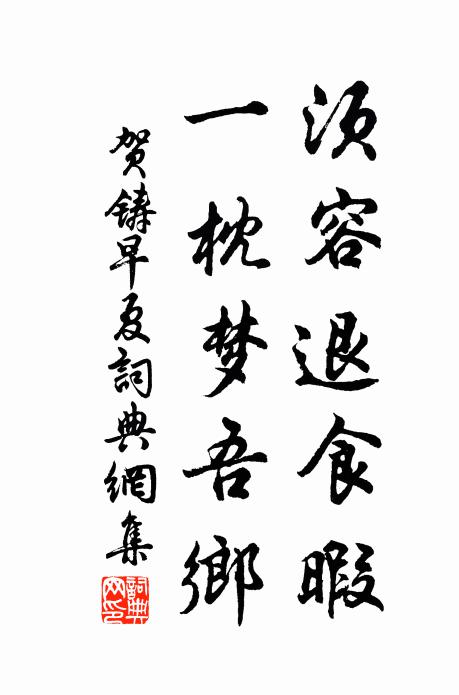 须容退食暇
一枕梦吾鄉
贺鑄早夏詞典網集
詞典网印